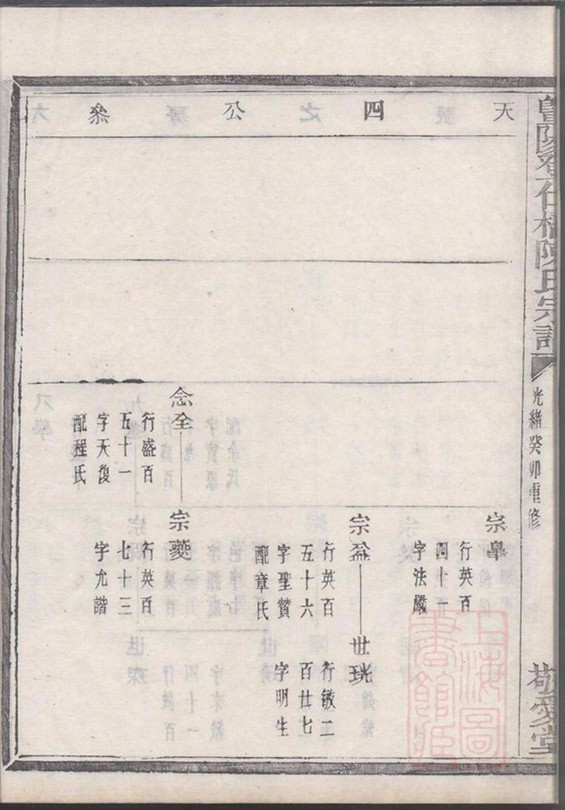 天四公叅
陳氏宗譜
光緒癸卯重修
敬愛堂
宗皐
行英百
四十一
字法嚴
宗盃
行英百
五十六
字聖贊
配章氏
世珖
行敏二
百廿七
字明生
念全
行盛百
五十一
字天復
配程氏
宗夔
行英百
七十三
字尤諧
上海圖書館藏